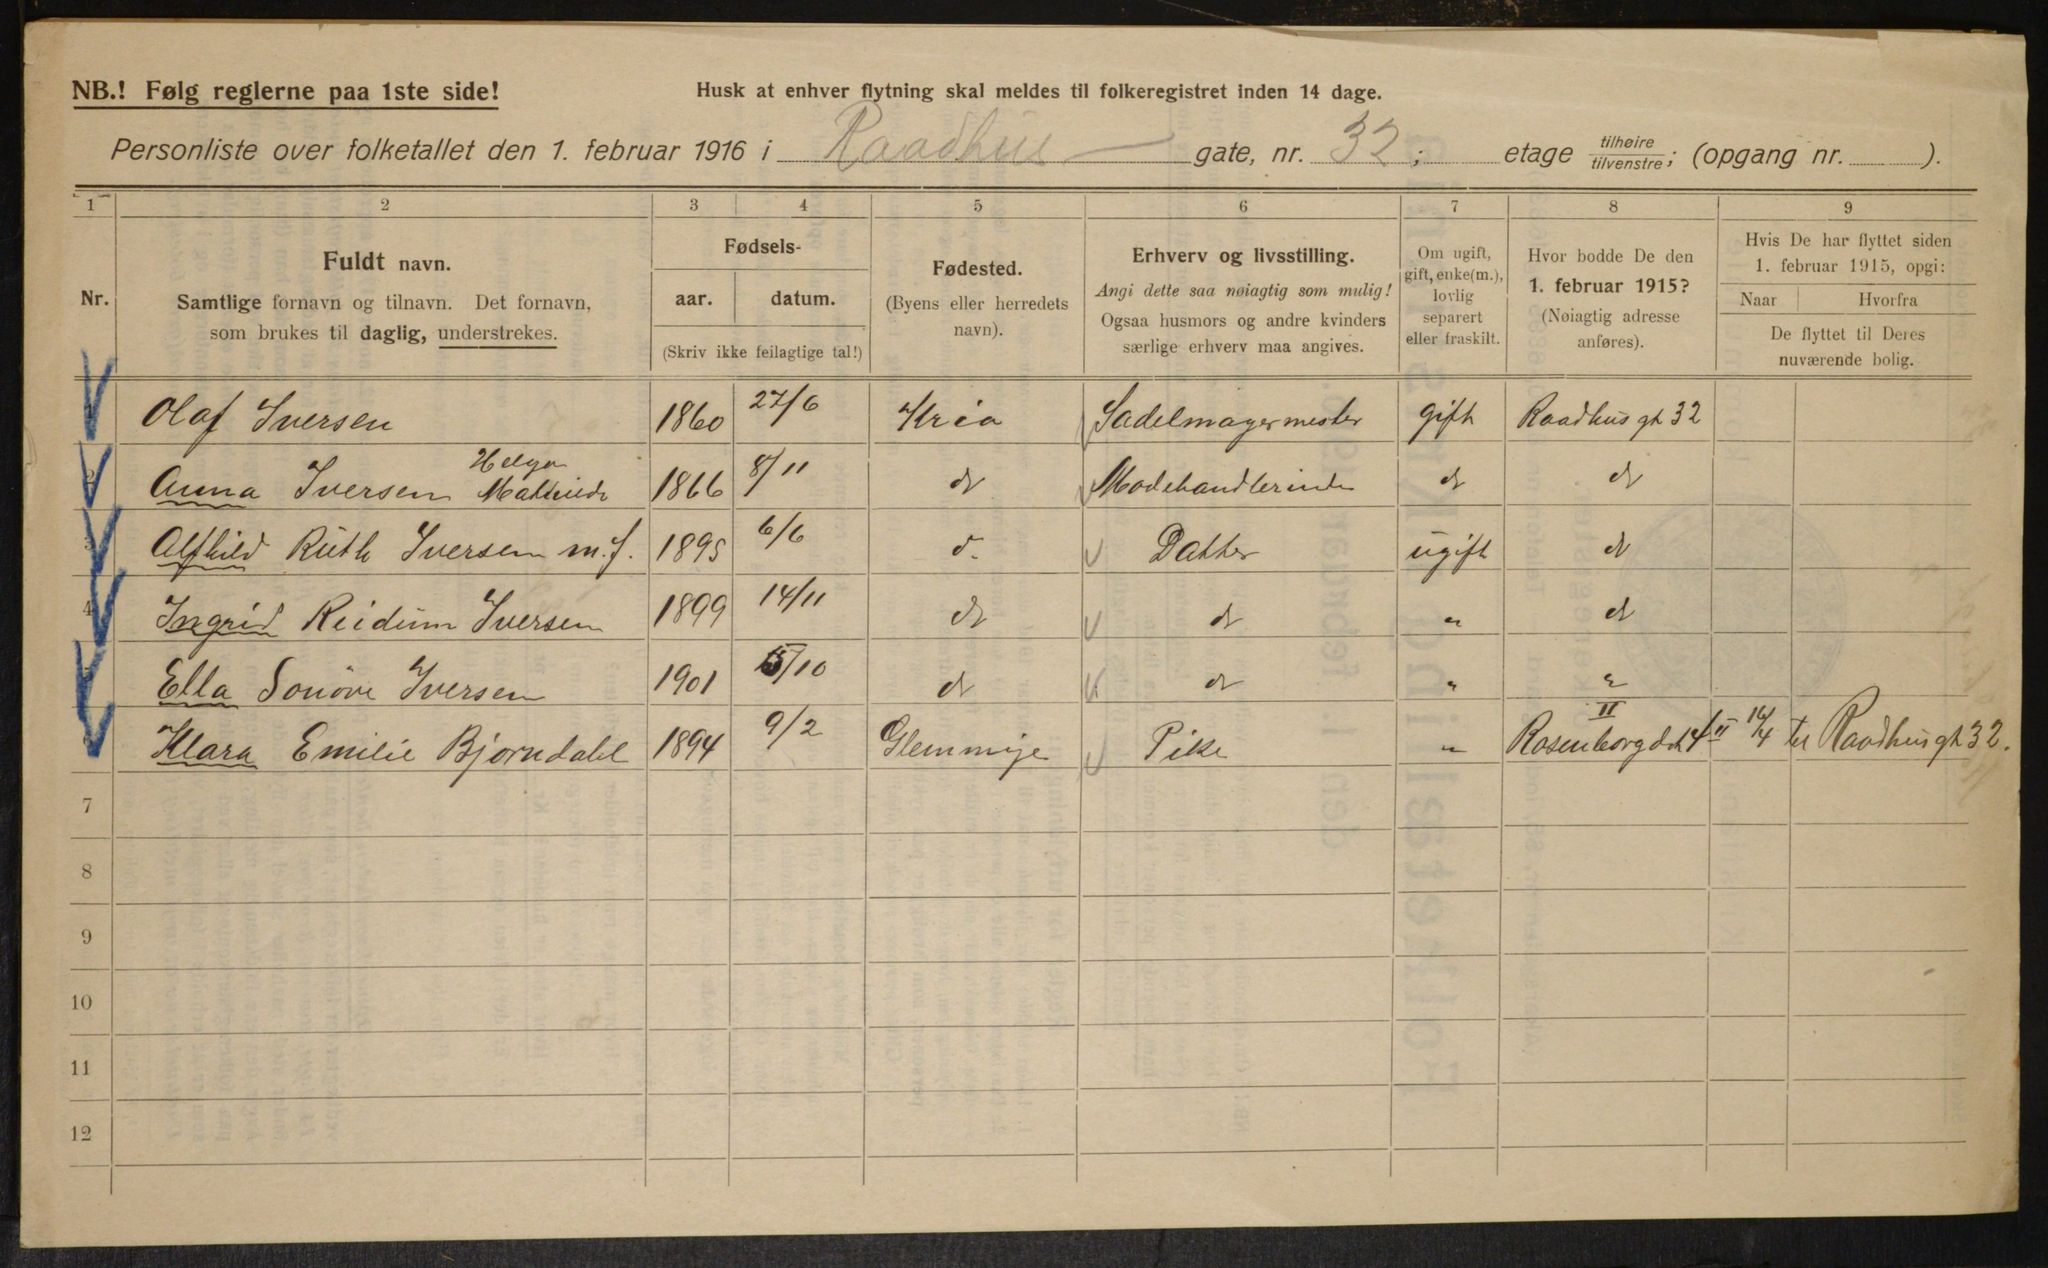 NB.! Følg reglerne paa 1ste side!
Husk at enhver flytning skal meldes til folkeregistret inden 14 dage.
Personliste over folketallet den 1. februar 1916 i Raadhus gate, nr. 32 ; etage tilhøire/tilvenstre; (opgang nr. ).
1 2 3 4 5 6 7 8 9
Nr.
Fuldt navn.
Samtlige fornavn og tilnavn. Det fornavn,
som brukes til daglig, understrekes.
Fødsels-
aar. datum.
(Skriv ikke feilagtige tal!)
Fødested.
(Byens eller herredets
navn).
Erhverv og livsstilling.
Angi dette saa nøiagtig som mulig!
Ogsaa husmors og andre kvinders
særlige erhverv maa angives.
Om ugift,
gift, enke(m.),
lovlig
separert
eller fraskilt.
Hvor bodde De den
1. februar 1915?
(Nøiagtig adresse
anføres).
Hvis De har flyttet siden
1. februar 1915, opgi:
Naar Hvorfra
De flyttet til Deres
nuværende bolig.
1 Olaf Iversen 1860 27/6 Kria Sadelmagermester gift Raadhusgt 32
2 Anna Iversen Helga Mathilde 1866 8/11 do Modehandlerinde do do
3 Alfhild Ruth Iversen m.f. 1895 6/6 d. Datter ugift do
4 Ingrid Reidun Iversen 1899 14/11 do do " do
5 Ella Sonøve Iversen 1901 15/10 do do " "
6 Klara Emilie Bjørndahl 1894 9/2 Glemminge Pike " Rosenborggt 4 II 16/4 til Raadhusgt 32.
7
8
9
10
11
12